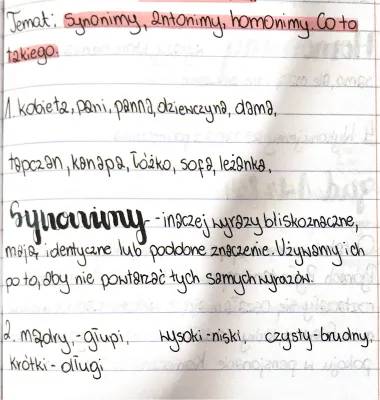 Temat: Synonimy, antonimy, homonimy. Co to
takiego.
1. kobieta, pani, panna, dziewczyna, dama,
tapczan, kanapa, łóżko, sofa, leżanka,
Synonimy - inaczej wyrazy bliskoznaczne,
mają identyczne lub podobne znaczenie. Używamy ich
po to, aby nie powtarzać tych samych wyrazów.
2. mądry, - głupi, wysoki - niski, czysty - brudny,
krótki - długi